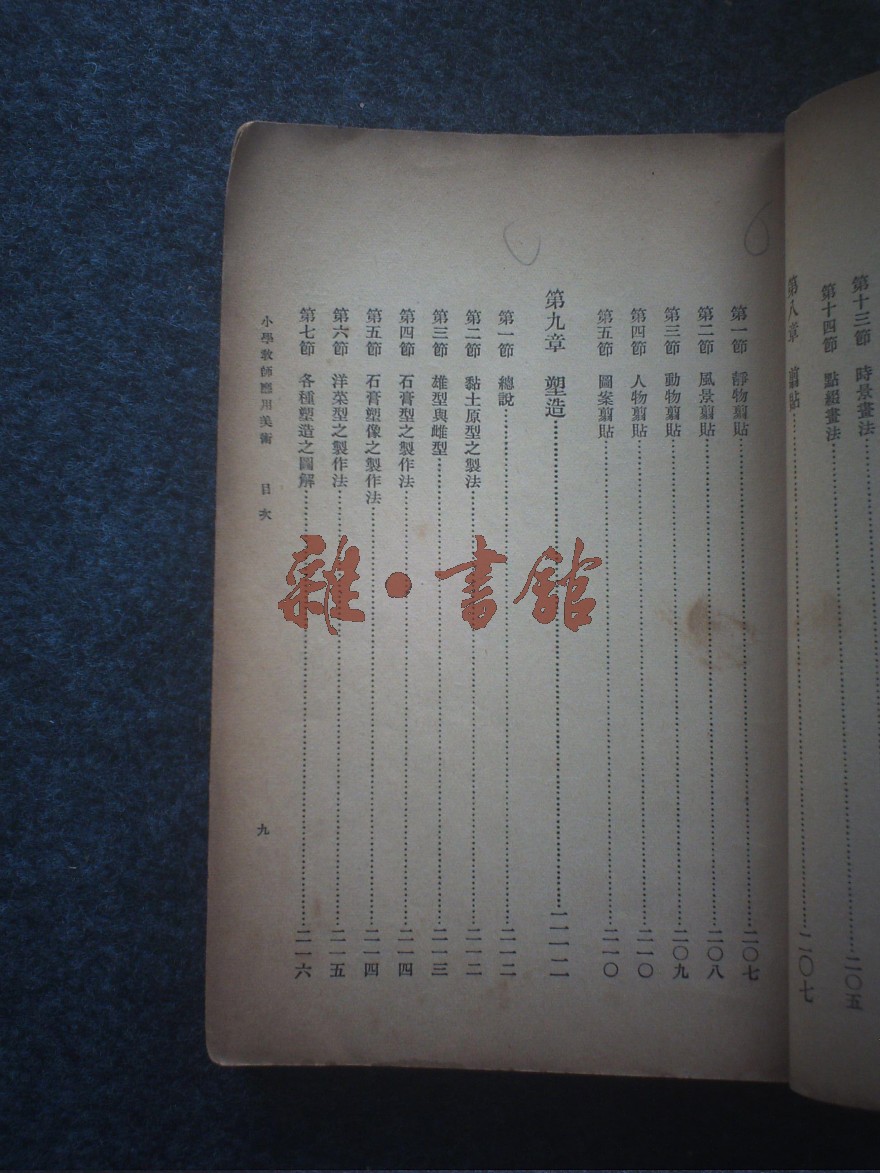 第十三節 時景畫法……二〇五
第十四節 點綴畫法……二〇五
第八章 剪貼……二〇七
第一節 靜物剪貼……二〇七
第二節 風景剪貼……二〇八
第三節 動物剪貼……二〇九
第四節 人物剪貼……二一〇
第五節 圖案剪貼……二一〇
第九章 塑造……二一二
第一節 總說……二一二
第二節 黏土原型之製法……二一二
第三節 雄型與雌型……二一三
第四節 石膏型之製作法……二一四
第五節 石膏塑像之製作法……二一四
第六節 洋菜型之製作法……二一五
第七節 各種塑造之圖解……二一六
小學教師應用美術 目次
九
雜·書館